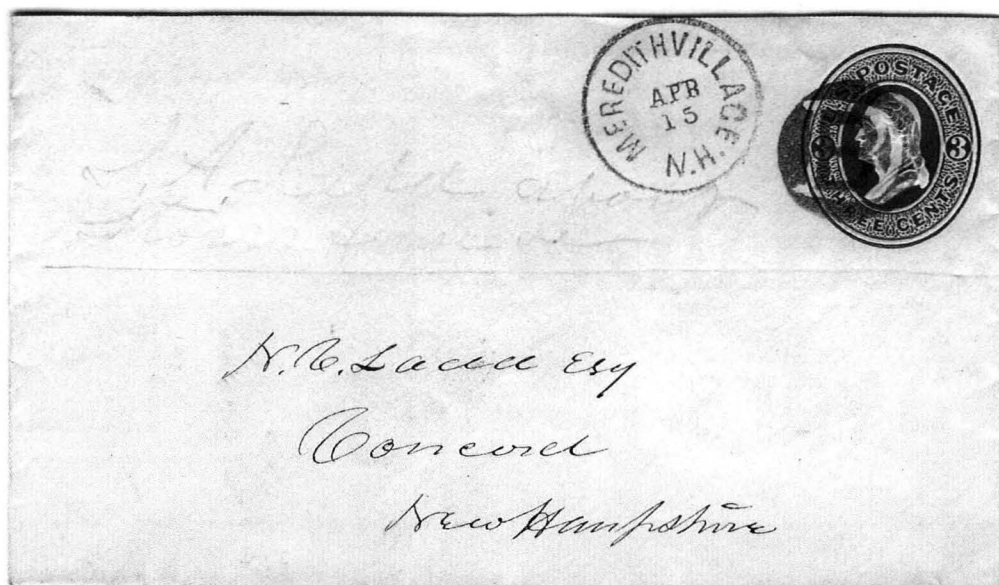 MEREDITH VILLAGE, N.H.
APR
15
U.S. POSTAGE
3 3
THREE CENTS
N. C. Ladd Esq
Concord
New Hampshire